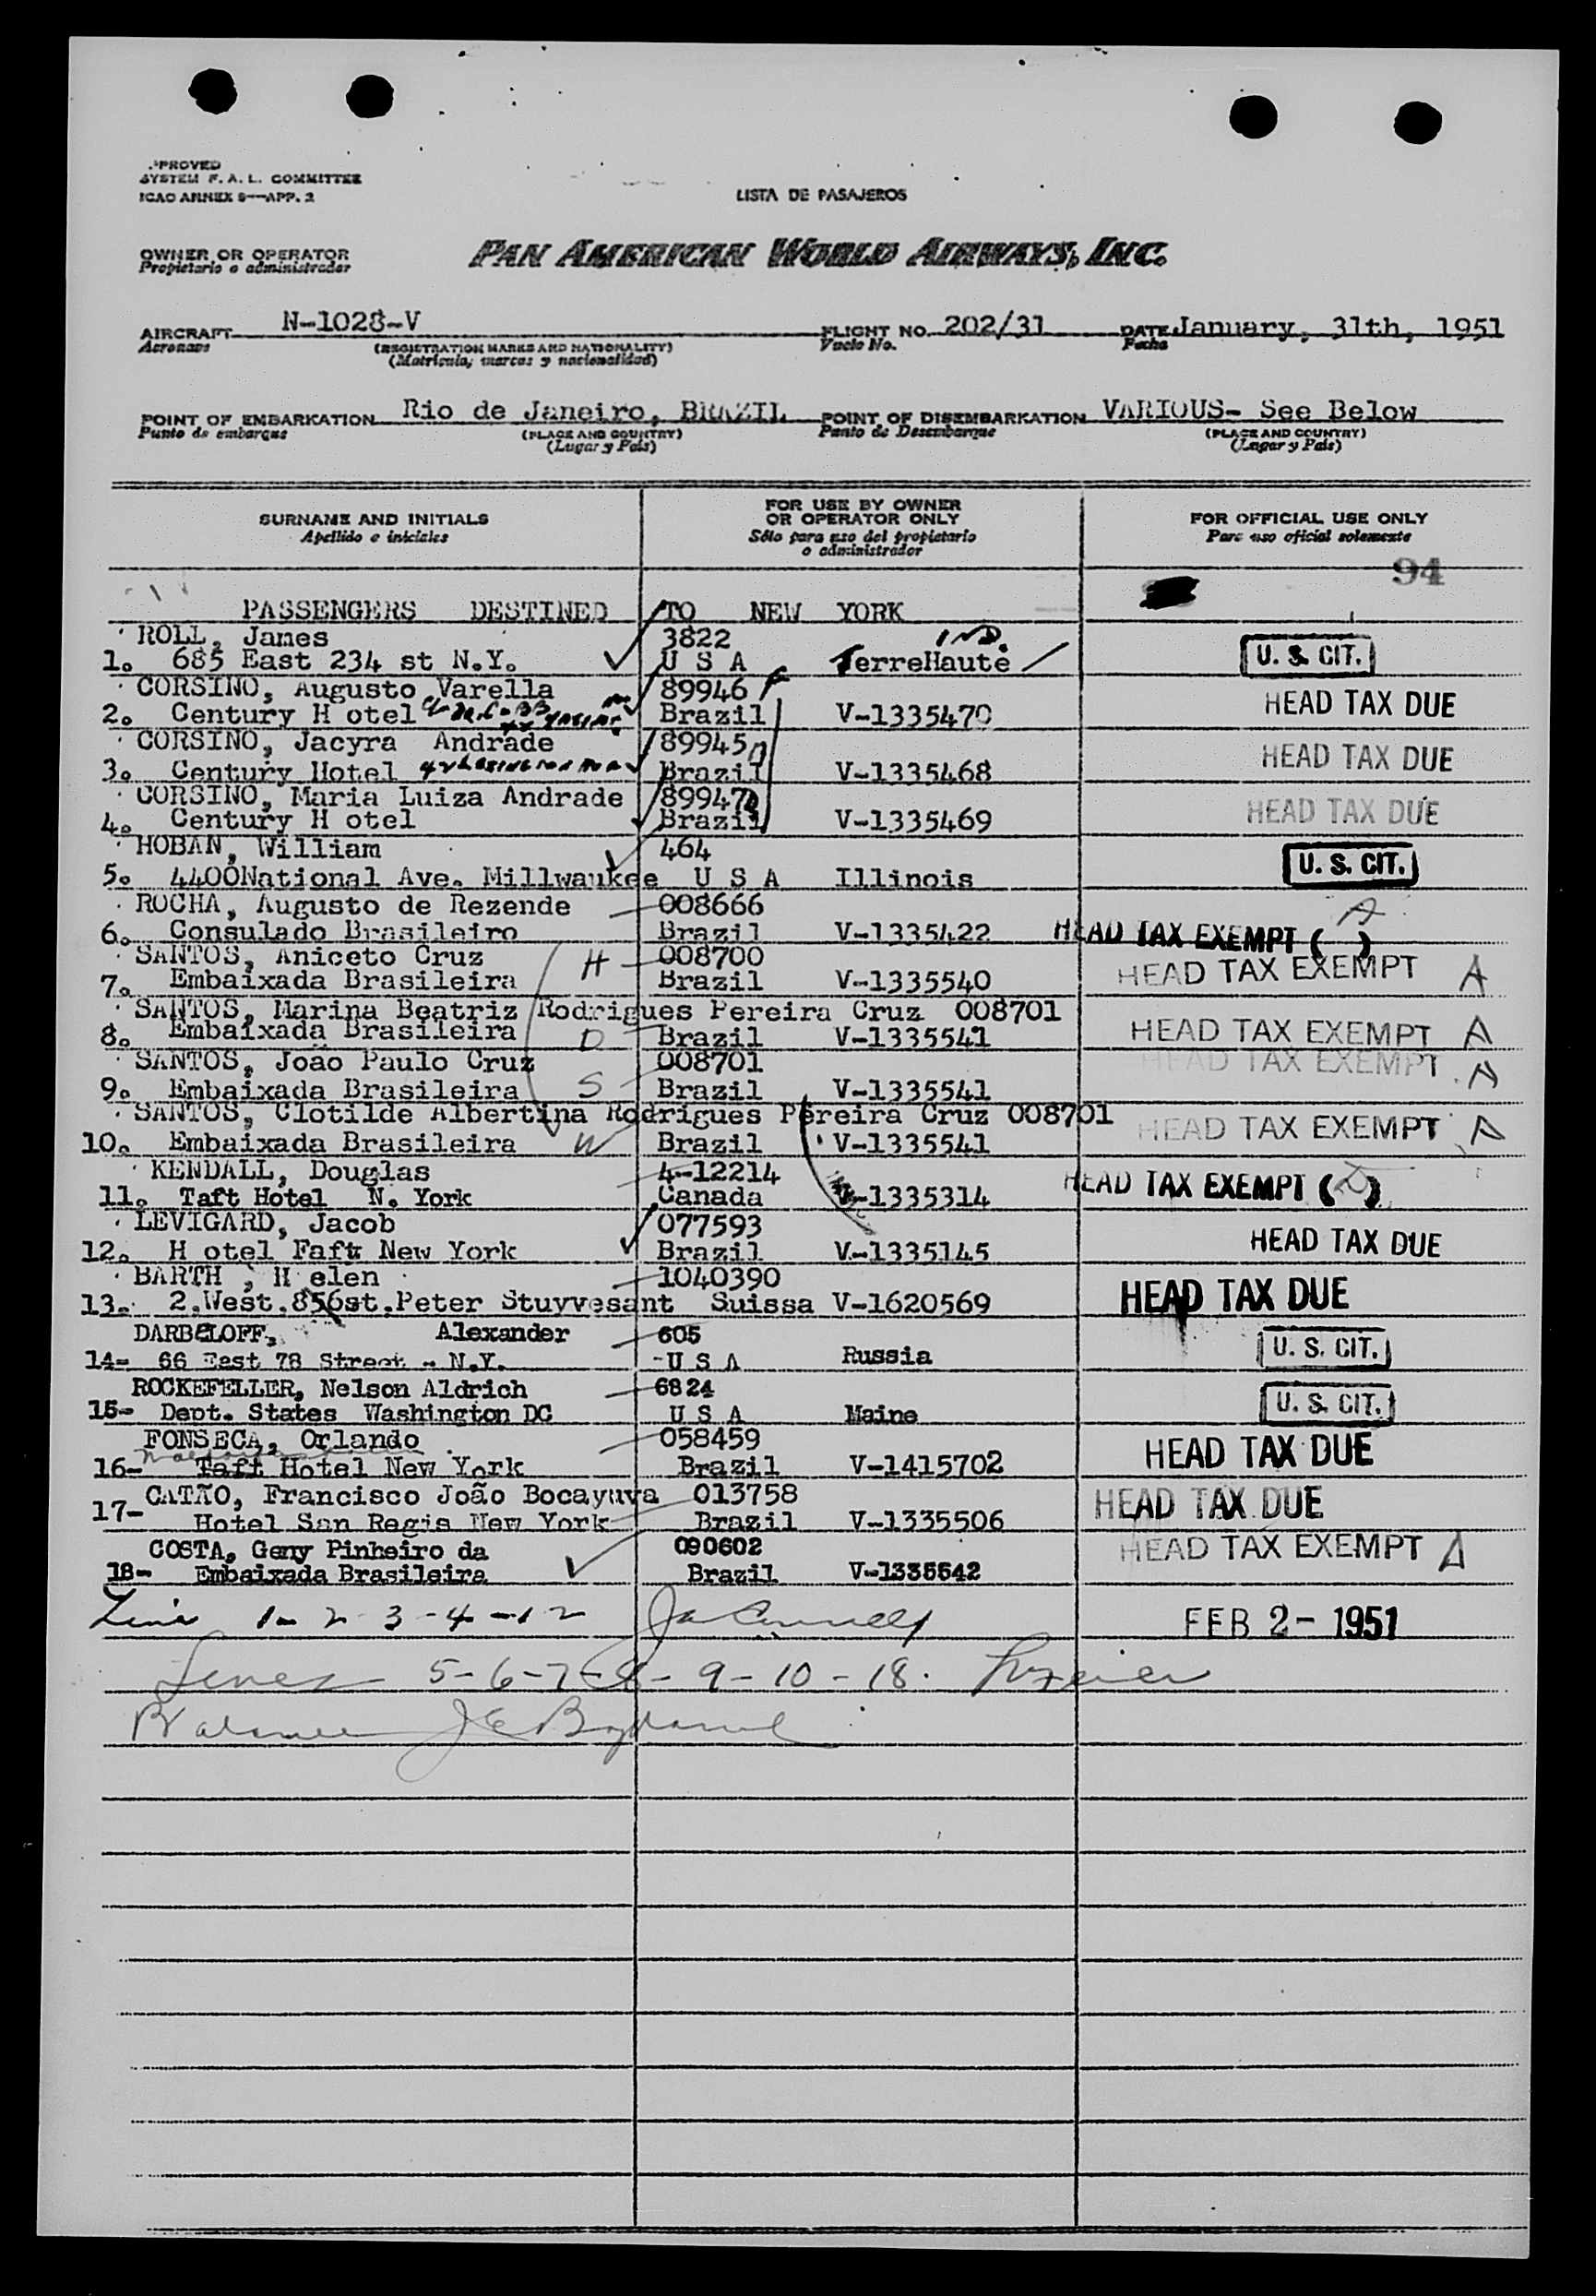 SYSTEM F. A. L. COMMITTEE
ICAO ANNEX 9—APP. 2
LISTA DE PASAJEROS
OWNER OR OPERATOR
Propietario o administrador
PAN AMERICAN WORLD AIRWAYS, INC.
AIRCRAFT N-1028-V FLIGHT NO. 202/31 DATE January, 31th, 1951
Aeronave (REGISTRATION MARKS AND NATIONALITY) Vuelo No. Fecha
(Matricula, marcas y nacionalidad)
POINT OF EMBARKATION Rio de Janeiro, BRAZIL POINT OF DISEMBARKATION VARIOUS- See Below
Punto de embarque (PLACE AND COUNTRY) Punto de Desembarque (PLACE AND COUNTRY)
(Lugar y País) (Lugar y País)
SURNAME AND INITIALS FOR USE BY OWNER OR OPERATOR ONLY FOR OFFICIAL USE ONLY
Apellido e iniciales Sólo para uso del propietario o administrador Para uso oficial solemente
94
PASSENGERS DESTINED TO NEW YORK
ROLL, James 3822 IND.
1. 685 East 234 st N.Y. U S A TerreHaute U. S. CIT.
CORSINO, Augusto Varella 89946
2. Century H otel Brazil V-1335470 HEAD TAX DUE
CORSINO, Jacyra Andrade 89945
3. Century Hotel Brazil V-1335468 HEAD TAX DUE
CORSINO, Maria Luiza Andrade 89947
4. Century H otel Brazil V-1335469 HEAD TAX DUE
HOBAN, William 464
5. 4400National Ave. Millwaukee U S A Illinois U. S. CIT.
ROCHA, Augusto de Rezende 008666 A
6. Consulado Brasileiro Brazil V-1335422 HEAD TAX EXEMPT ( )
SANTOS, Aniceto Cruz H 008700
7. Embaixada Brasileira Brazil V-1335540 HEAD TAX EXEMPT A
SANTOS, Marina Beatriz Rodrigues Pereira Cruz 008701
8. Embaixada Brasileira D Brazil V-1335541 HEAD TAX EXEMPT A
SANTOS, Joao Paulo Cruz 008701 HEAD TAX EXEMPT A
9. Embaixada Brasileira S Brazil V-1335541
SANTOS, Clotilde Albertina Rodrigues Pereira Cruz 008701
10. Embaixada Brasileira W Brazil V-1335541 HEAD TAX EXEMPT A
KENDALL, Douglas 4-12214
11. Taft Hotel N. York Canada V-1335314 HEAD TAX EXEMPT ( )
LEVIGARD, Jacob 077593
12. H otel Faft New York Brazil V-1335145 HEAD TAX DUE
BARTH , H elen 1040390
13. 2.West.856st.Peter Stuyvesant Suissa V-1620569 HEAD TAX DUE
DARBELOFF, Alexander 605
14- 66 East 78 Street - N.Y. -U S A Russia U. S. CIT.
ROCKEFELLER, Nelson Aldrich 6824
15- Dept. States Washington DC U S A Maine U. S. CIT.
FONSECA, Orlando 058459
16- Taft Hotel New York Brazil V-1415702 HEAD TAX DUE
CATÃO, Francisco João Bocayuva 013758
17- Hotel San Regis New York Brazil V-1335506 HEAD TAX DUE
COSTA, Geny Pinheiro da 090602 HEAD TAX EXEMPT A
18- Embaixada Brasileira Brazil V-1335542
1- 2 - 3 - 4 - 12 FEB 2 - 1951
Lines 5-6-7-8-9-10-18.
Balance